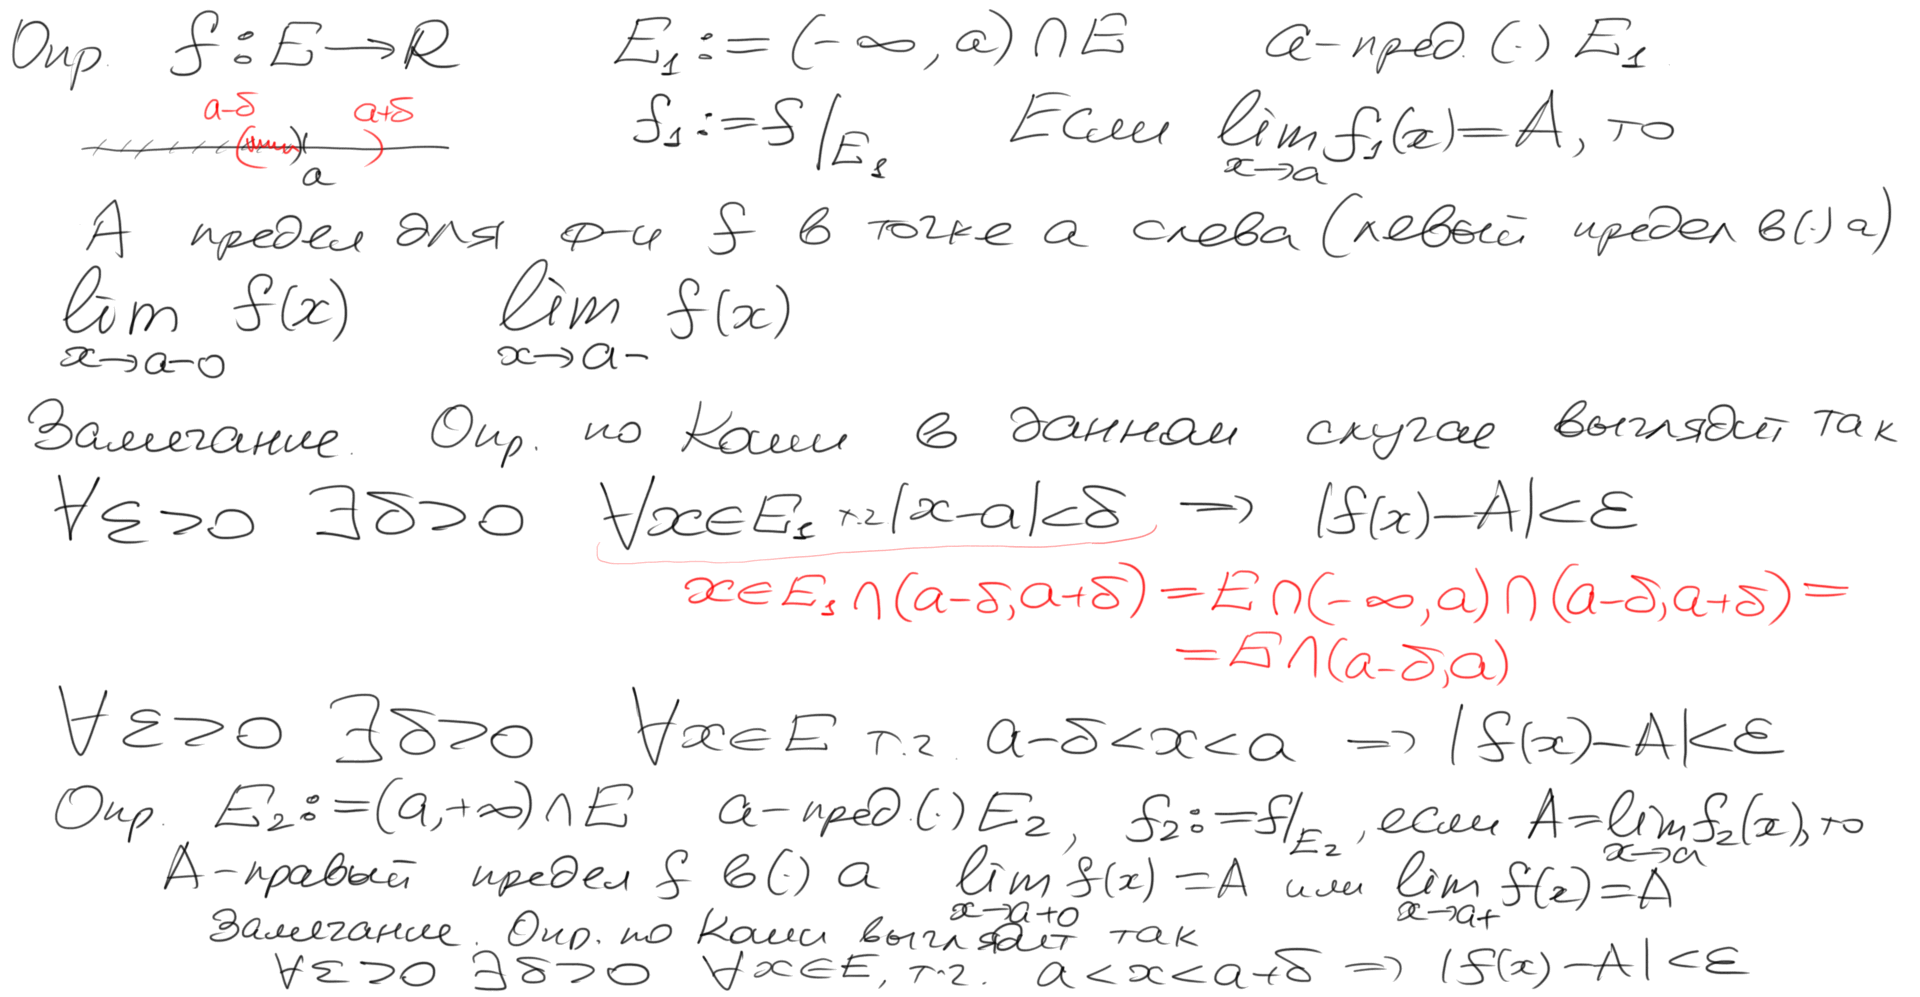 Опр. f:E→R E₁:=(-∞,a)∩E a-пред.(·)E₁
a-δ a+δ f₁:=f|_E₁ Если lim f₁(x)=A, то
a x→a
A предел для ф-и f в точке a слева (левый предел в(·)a)
lim f(x) lim f(x)
x→a-0 x→a-
Замечание. Опр. по Коши в данном случае выглядит так
∀ε>0 ∃δ>0 ∀x∈E₁ т.ч |x-a|<δ ⇒ |f(x)-A|<ε
x∈E₁∩(a-δ,a+δ)=E∩(-∞,a)∩(a-δ,a+δ)=
=E∩(a-δ,a)
∀ε>0 ∃δ>0 ∀x∈E т.ч. a-δ<x<a ⇒ |f(x)-A|<ε
Опр. E₂:=(a,+∞)∩E a-пред.(·)E₂, f₂:=f|_E₂, если A=lim f₂(x), то
x→a
A-правый предел f в(·) a lim f(x)=A или lim f(x)=A
x→a+0 x→a+
Замечание. Опр. по Коши выглядит так
∀ε>0 ∃δ>0 ∀x∈E, т.ч. a<x<a+δ ⇒ |f(x)-A|<ε